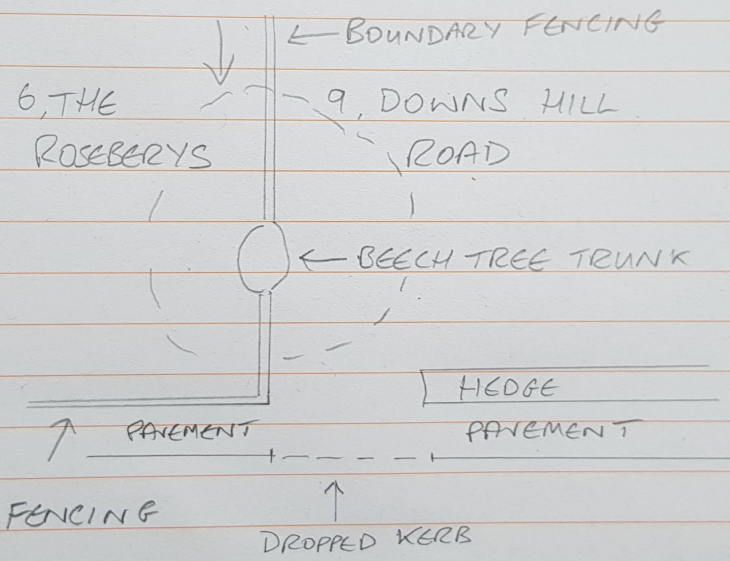 BOUNDARY FENCING
6, THE
ROSEBERYS
9, DOWNS HILL
ROAD
BEECH TREE TRUNK
HEDGE
PAVEMENT
PAVEMENT
FENCING
DROPPED KERB